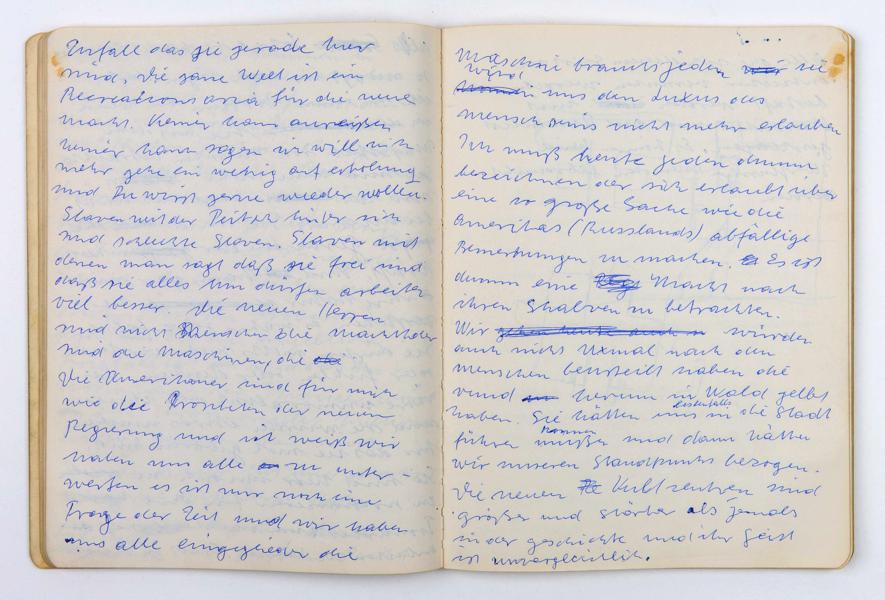 Zufall das sie gerade hier
sind, die ganze Welt ist ein
Recreations aria für die neue
macht. Keiner kann ausreißen
keiner kann sagen ich will nicht
mehr gehe ein wenig auf erholung
und Du wirst gerne wieder wollen.
Slaven mit der Peitsche hinter sich
sind schlechte Slaven. Slaven mit
denen man sagt daß sie frei sind
daß sie alles tun dürfen arbeiten
viel besser. die neuen Herren
sind nicht Menschen die Machthaber
sind die Maschinen, die
Die Amerikaner sind für mich
wie die Propheten der neuen
Regierung und ich weiß wir
haben uns alle zu unter-
werfen es ist nur noch eine
Frage der Zeit und wir haben
uns alle eingeglieder die
Maschine brauchts jeden sie
wird
uns den Luxus des
menschseins nicht mehr erlauben
Ich muß heute jeden dumm
bezeichnen der sich erlaubt über
eine so große Sache wie die
Amerikas (Russlands) abfällige
Bemerkungen zu machen. Es ist
dumm eine Macht nach
ihren Skalven zu betrachten.
Wir würden
auch nicht mal nach den
menschen beurteilt haben die
rund herum in Wald gelebt
haben. Sie hätten uns in die Stadt
führen müssen und dann hätten
wir unseren Standpunkt bezogen.
Die neuen Kultzentren sind
größer und stärker als jemals
in der geschichte und ihr Geist
ist unvergleichlich.